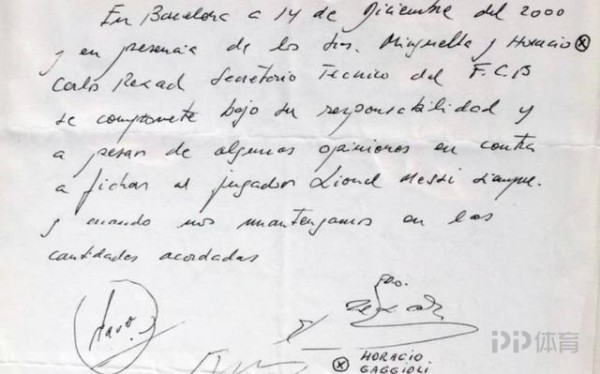 En Barcelona a 14 de Diciembre del 2000
y en presencia de los Sres. Minguella y Horacio ⓧ
Carlos Rexach Secretario Técnico del F.C.B
se compromete bajo su responsabilidad y
a pesar de algunas opiniones en contra
a fichar al jugador Lionel Messi siempre
y cuando nos mantengamos en las
cantidades acordadas
ⓧ HORACIO
GAGGIOLI
PP体育